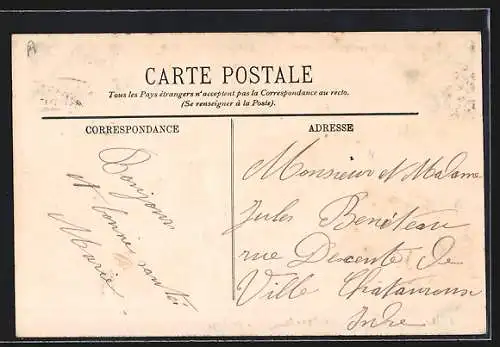 CARTE POSTALE
Tous les Pays étrangers n'acceptent pas la Correspondance au recto.
(Se renseigner à la Poste).
CORRESPONDANCE
Bonjour
et bonne santé
Marie
ADRESSE
Monsieur et Madame
Jules Benéteau
rue Descente de
Ville Chateauroux
Indre